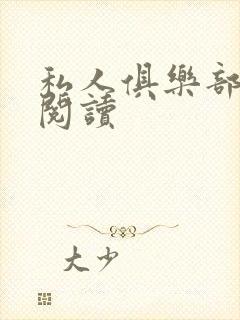 私人俱樂部
閱讀
大少